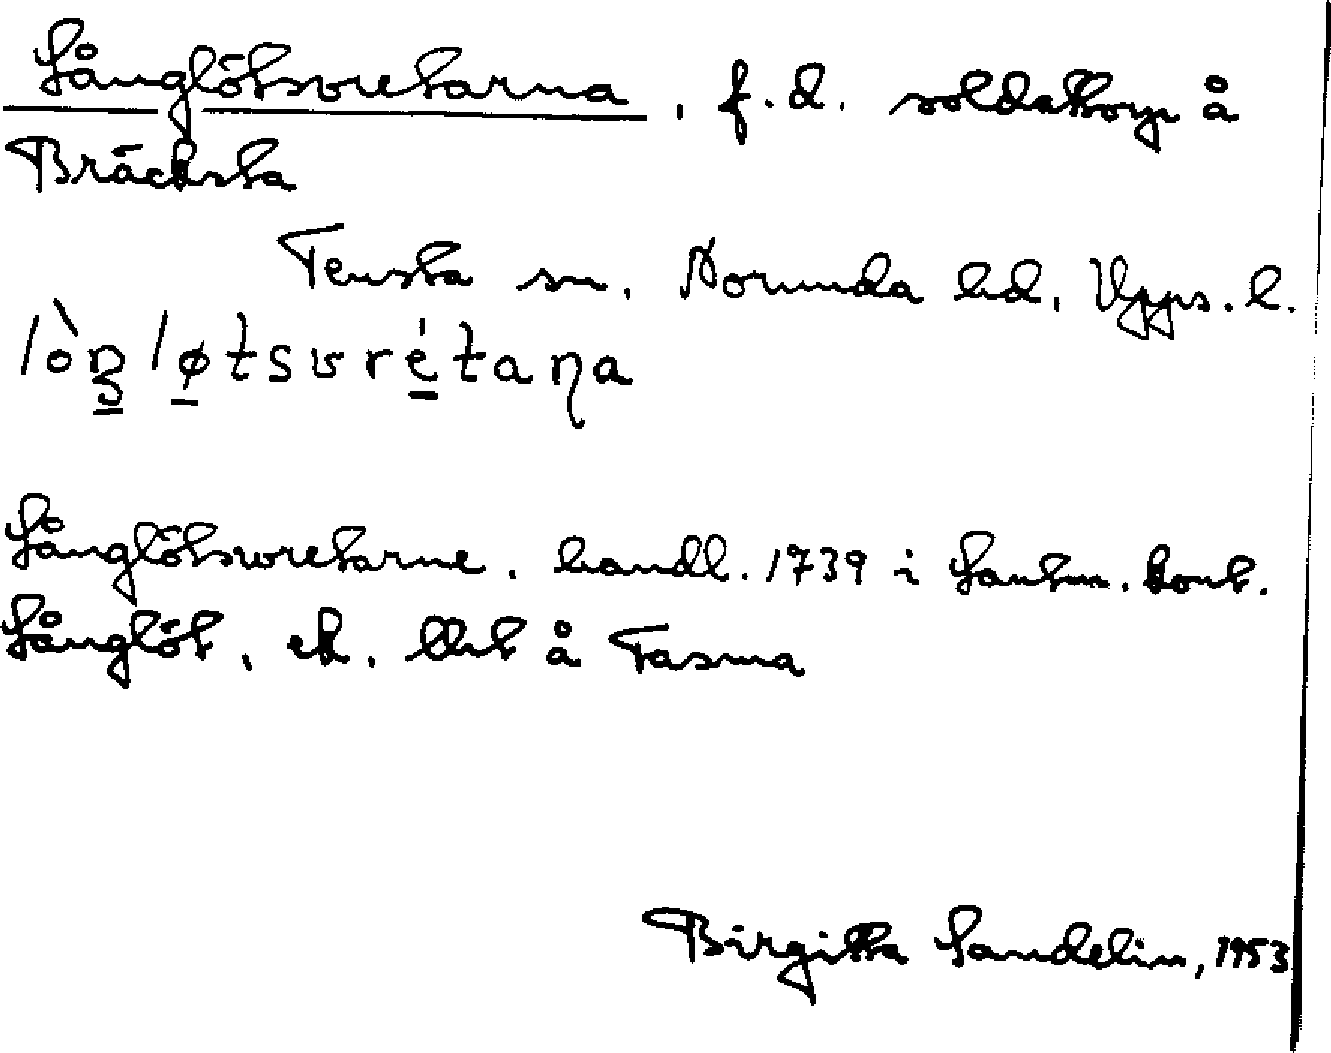 Långlötsvretarna, f.d. soldattorp å
Bräcksta
Tensta sn. Norunda hd. Upps. l.
Långlötsvretarne. handl. 1739 i Lantm. kont.
Långlöt, ek. bet å Fasma
Birgitta Sandelin, 1953